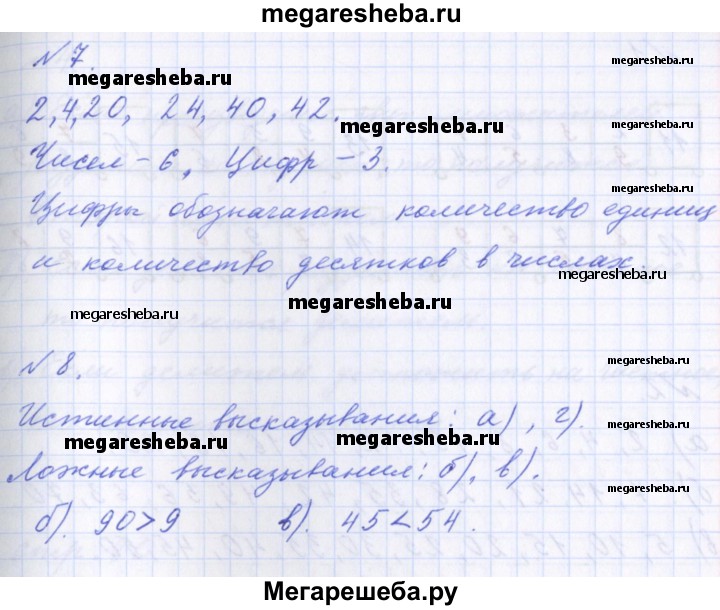 megaresheba.ru
№ 7.
megaresheba.ru
megaresheba.ru
2, 4, 20, 24, 40, 42.
megaresheba.ru
megaresheba.ru
Чисел – 6, Цифр – 3.
Цифры обозначают количество единиц
megaresheba.ru
и количество десятков в числах.
megaresheba.ru
megaresheba.ru
megaresheba.ru
megaresheba.ru
№ 8.
megaresheba.ru
Истинные высказывания: а), г).
megaresheba.ru
megaresheba.ru
megaresheba.ru
Ложные высказывания: б), в).
megaresheba.ru
б). 90>9 в). 45<54.
megaresheba.ru
Мегарешеба.ру